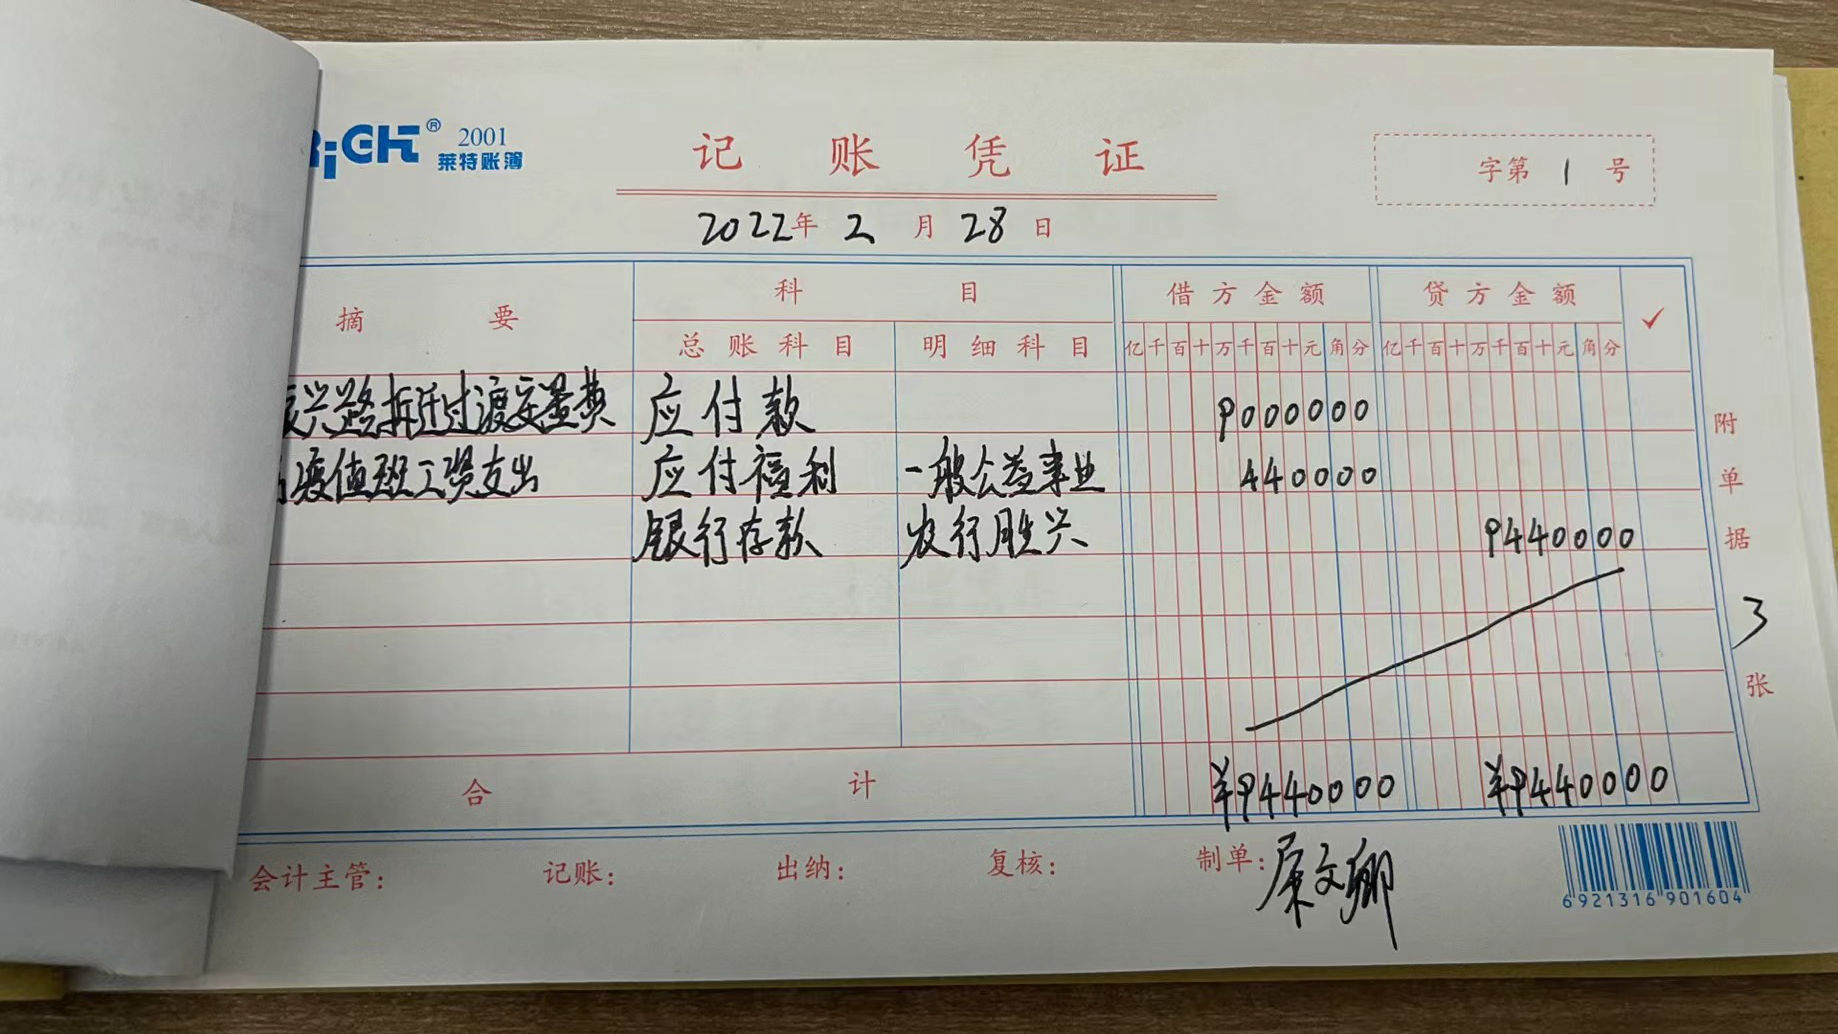 RiGHT® 2001
莱特账簿
记 账 凭 证
字第 1 号
2022年 2 月 28 日
摘 要 科 目 借方金额 贷方金额 ✓
总账科目 明细科目 亿千百十万千百十元角分 亿千百十万千百十元角分
兴路拆迁过渡安置费 应付款 9000000
疫值班工资支出 应付福利 一般公益事业 440000
银行存款 农行胜兴 9440000
合 计 ¥9440000 ¥9440000
附单据 3 张
会计主管: 记账: 出纳: 复核: 制单:
6921316901604